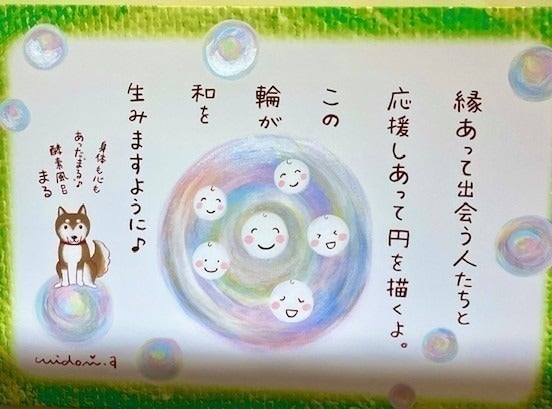 縁あって出会う人たちと
応援しあって円を描くよ。
この
輪が
和を
生みますように♪
身体も心も
あったまる♪
酵素風呂
まる
midori.a